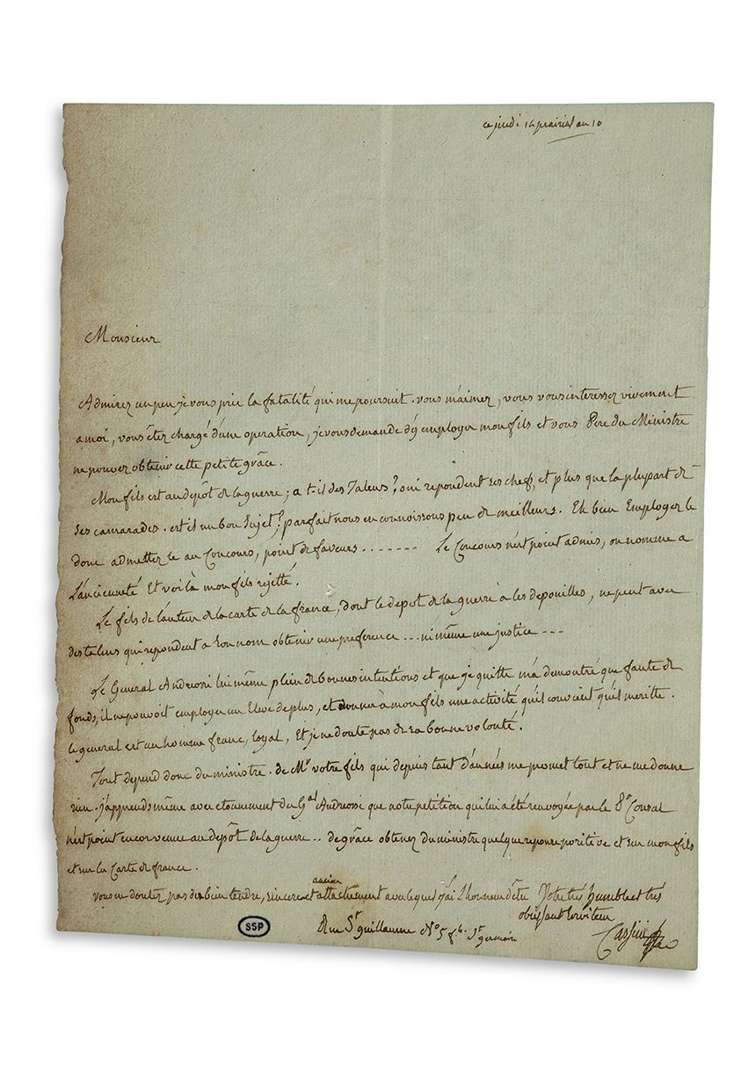 ce jeudi 14 prairial an 10
Monsieur
Admirez un peu je vous prie la fatalité qui me poursuit. vous m'aimez, vous vous interessez vivement
a moi, vous êtez chargé d'une operation, je vous demande d'y employer mon fils et vous Pere du Ministre
ne pouvez obtenir cette petite grâce.
Mon fils est au depôt de la guerre; a t-il des Talens? oui repondent ses chefs et plus que la plupart de
ses camarades. est il un bon sujet? parfait nous en connoissons peu de meilleurs. Eh bien Employez le
donc admettez le au Concours, point de faveurs ....... Le Concours n'est point admis, on nomme a
L'ancienneté Et voila mon fils rejetté.
Le fils de l'auteur de la carte de la france, dont le depot de la guerre à les depouilles, ne peut avec
des talens qui repondent a son nom obtenir une preference ... ni même une justice ---
Le General Andreossi lui même plein de bonnes intentions et que je quitte m'a demontré que faute de
fonds, il ne pouvoit employer un Eleve de plus, et donner à mon fils une activité qu'il convient qu'il meritte.
le general est un homme franc, loyal, Et je ne doute pas de sa bonne volonté.
Tout depend donc du ministre. de Mr votre fils qui depuis tant d'années me promet tout et ne me donne
rien. j'apprends même avec etonnement du Gal Andreossi que notre petition qui lui a été renvoyée par le Consul
n'est point encor venue au depôt de la guerre .. de grâce obtenez du ministre quelque reponse positive et sur mon fils
et sur la Carte de france.
ancien
vous ne doutez pas du bien tendre, sincere et attachement avec lequel j'ai l'honneur d'être Votre tres humble et tres
obeissant serviteur
SSP
Rue St guillaume No 5 f.b. St germain
Cassini